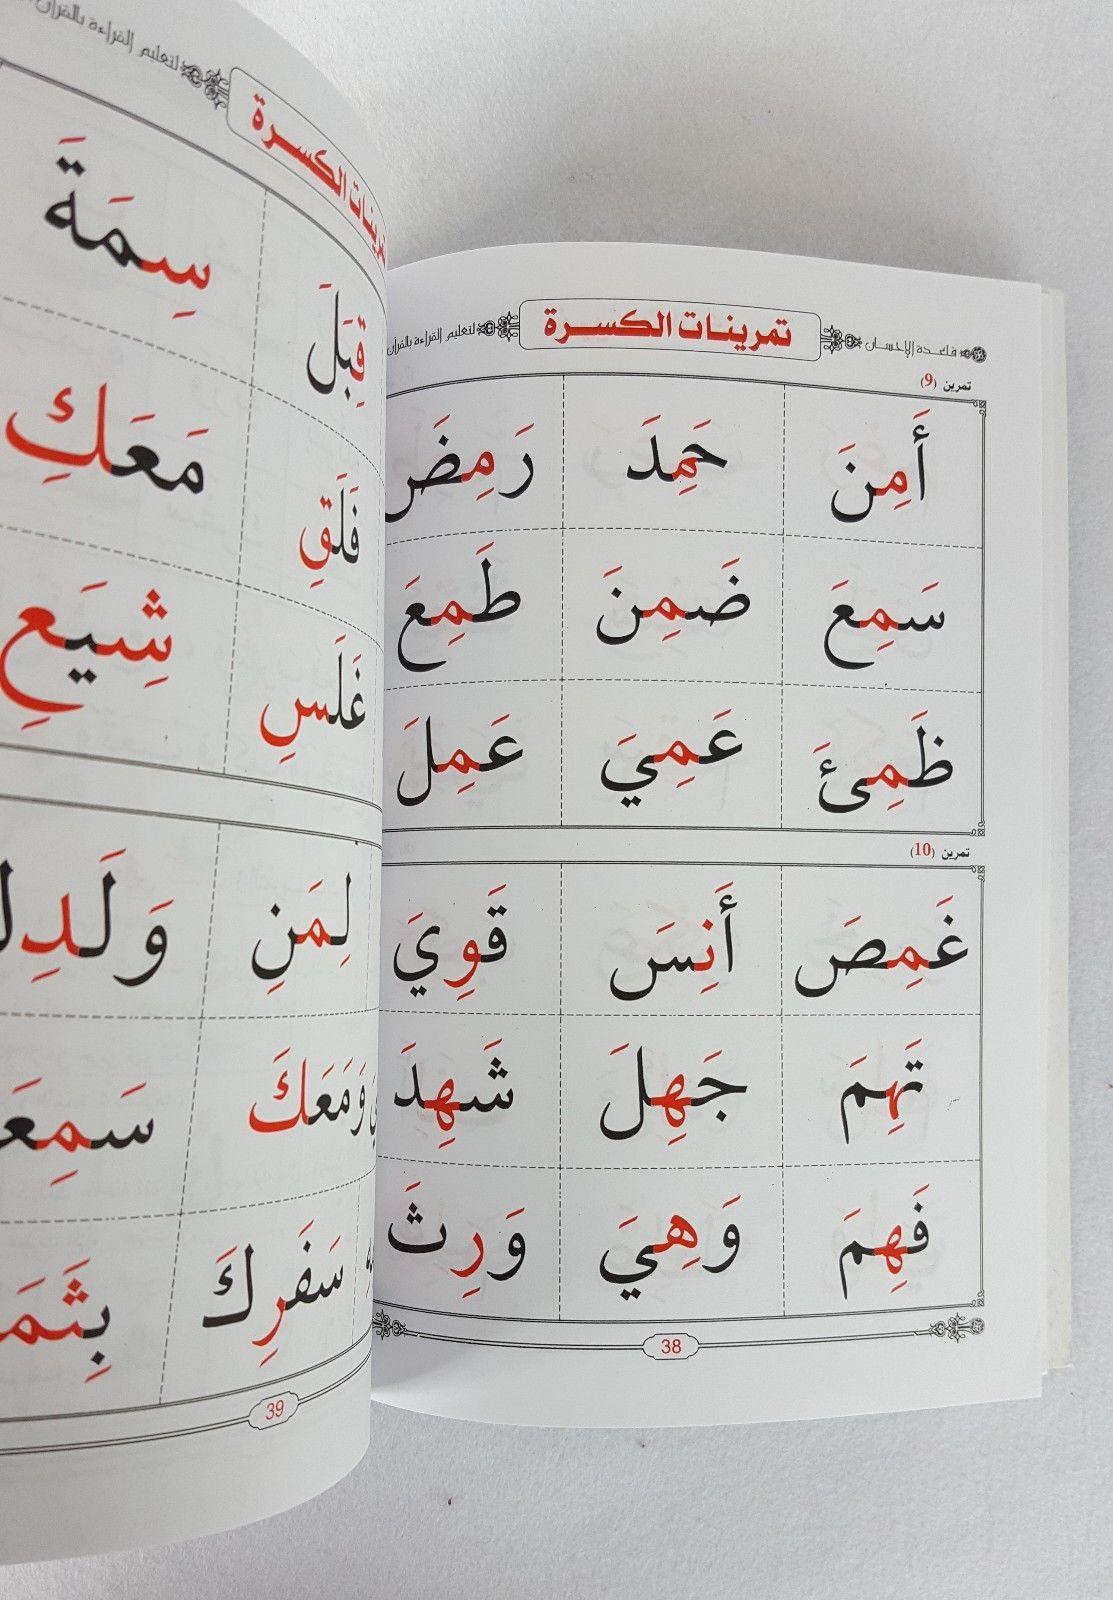 قاعدة الإحسان تمرينات الكسرة لتعليم القراءة بالقرآن
تمرين (9)
أَمِنَ حَمِدَ رَمِضَ
سَمِعَ ضَمِنَ طَمِعَ
ظَمِئَ عَمِيَ عَمِلَ
تمرين (10)
غَمِصَ أَنِسَ قَوِيَ
تَهِمَ جَهِلَ شَهِدَ
فَهِمَ وَهِيَ وَرِثَ
38
تمرينات الكسرة لتعليم القراءة بالقرآن
قِبَلَ سِمَةَ
فَلَقِ مَعَكِ
غَلَسِ شِيَعِ
لِمَنِ
وَمَعَكَ
سَفَرِكَ
39